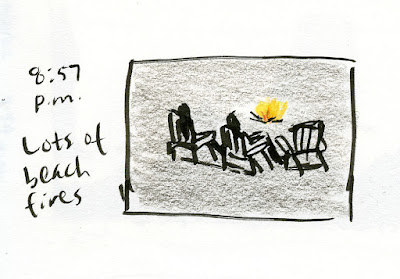 8:57
p.m.
Lots of
beach
fires